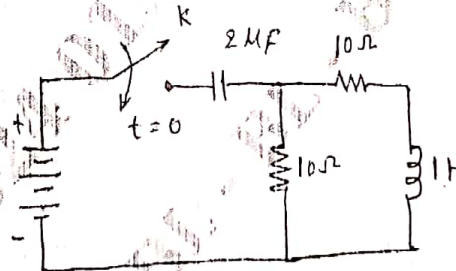 K
2 MF 10Ω
+
t = 0
10Ω
1H
-